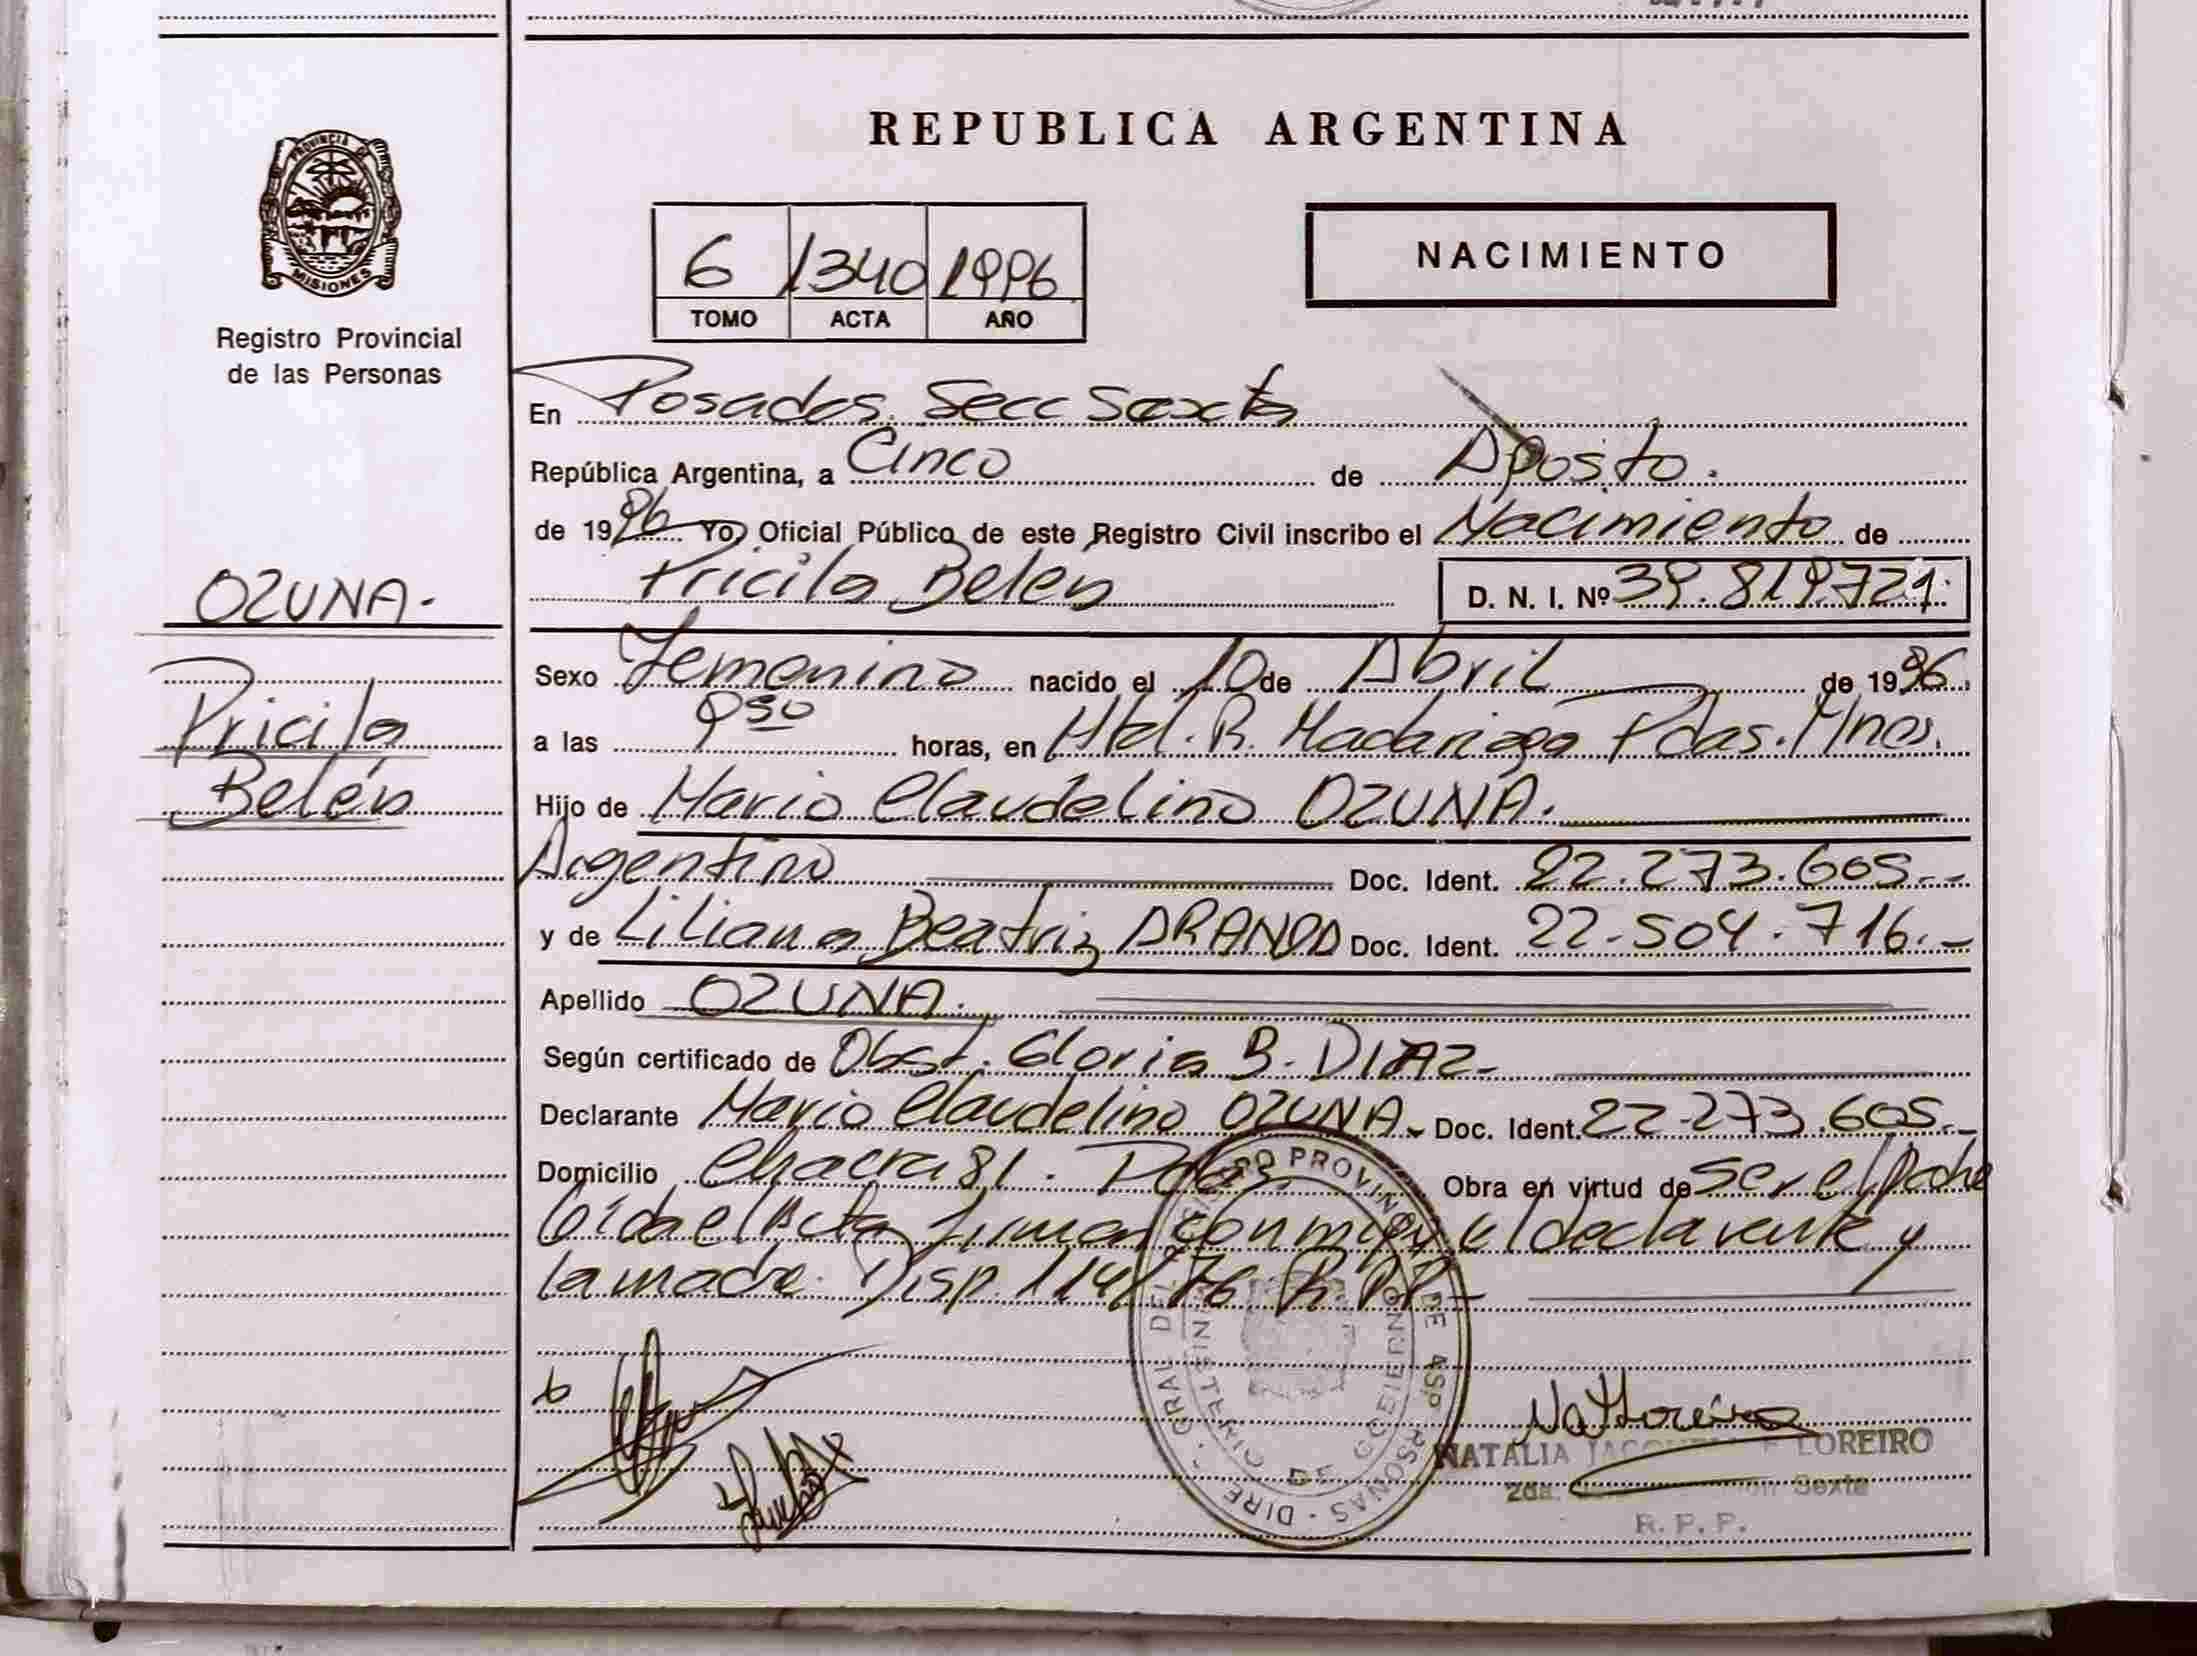 REPUBLICA ARGENTINA
PROVINCIA DE MISIONES
Registro Provincial
de las Personas
6 1340 1996
TOMO ACTA AÑO
NACIMIENTO
En Posadas. Secc Sexta
República Argentina, a Cinco de Agosto.
de 1996 Yo, Oficial Público de este Registro Civil inscribo el Nacimiento de
Pricila Belen D. N. I. Nº 39.819.721.
OZUNA.-
Pricila
Belén
Sexo Femenino nacido el 10 de Abril de 1996.
a las 9:30 horas, en Htal. R. Madariaga Pdas. Mnes.
Hijo de Mario Claudelino OZUNA.
Argentino Doc. Ident. 22.273.605.--
y de Liliana Beatriz ARANDA Doc. Ident. 22.504.716.-
Apellido OZUNA.
Según certificado de Obst. Gloria B. DIAZ-
Declarante Mario Claudelino OZUNA- Doc. Ident. 22.273.605.-
Domicilio Chacra 81. Pdas Obra en virtud de ser el padre
Leída el Acta firman conmigo el declarante y
la madre. Disp. 114/76 R.P.P.-
DIRE GRAL DEL PROVIN DE PERSONAS
MINISTERIO DE GOBIERNO
NATALIA JACQUELINE LOREIRO
2da. Sexta
R. P. P.